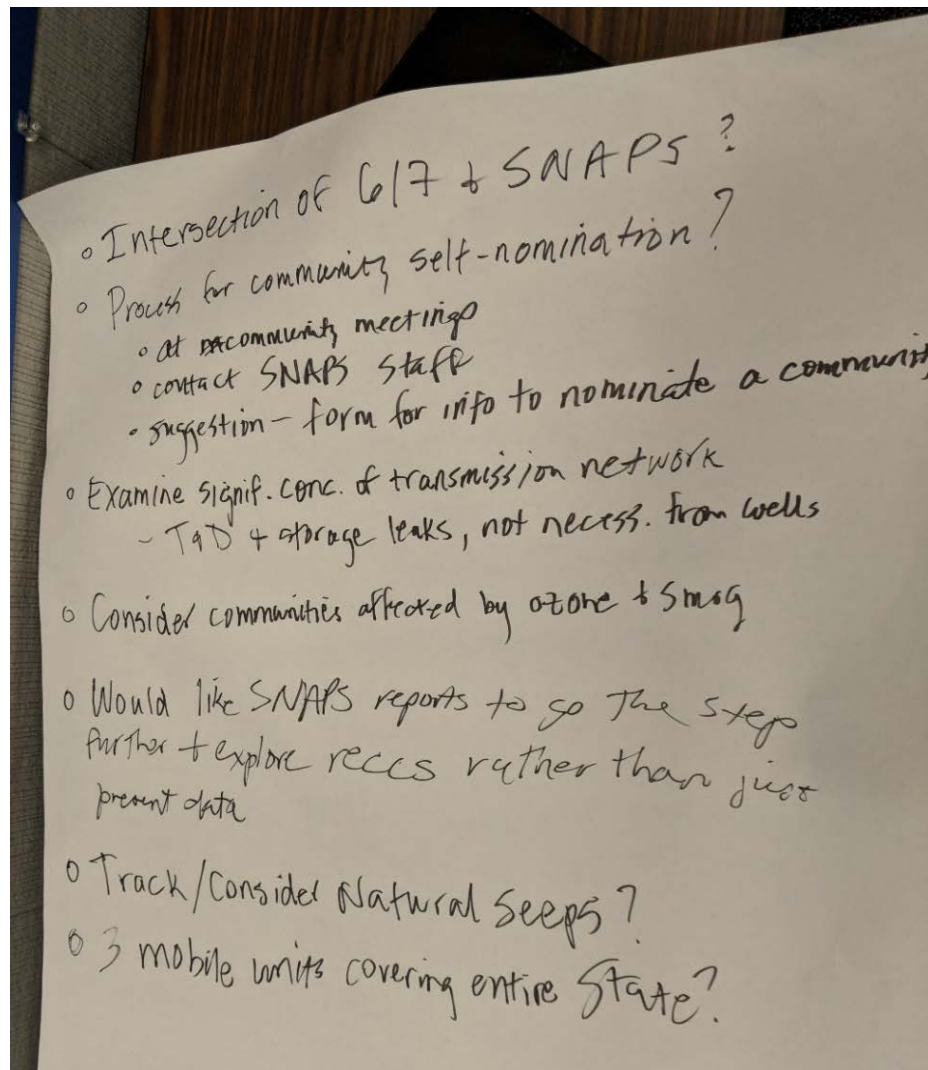 o Intersection of 617 + SNAPS?
o Process for community self-nomination?
o at community meetings
o contact SNAPS staff
• suggestion - form for info to nominate a communit
o Examine signif. conc. of transmission network
- T&D + storage leaks, not necess. from wells
o Consider communities affected by ozone + smog
o Would like SNAPS reports to go the step
further + explore reccs rather than just
present data
o Track/Consider Natural Seeps?
o 3 mobile units covering entire State?